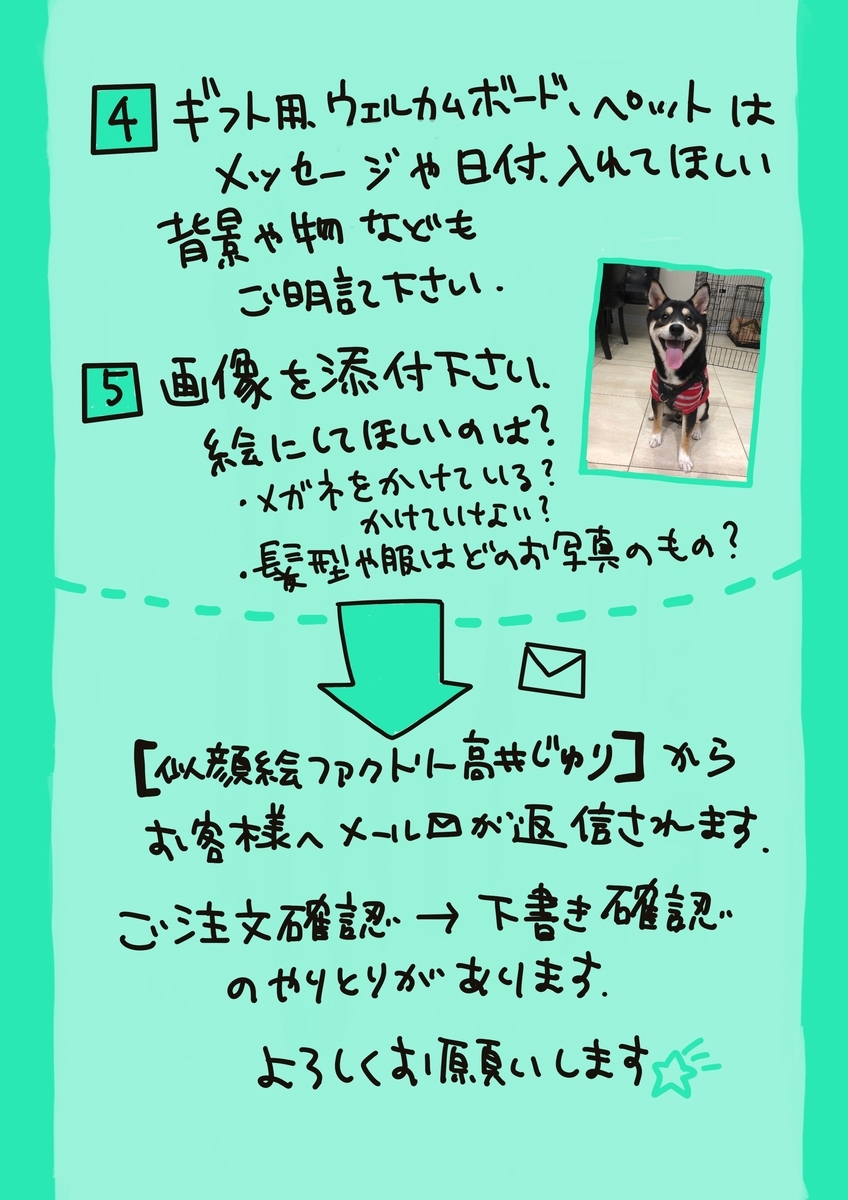 4 ギフト用、ウェルカムボード、ペットは
メッセージや日付、入れてほしい
背景や物なども
ご明記下さい.
5 画像を添付下さい、
絵にしてほしいのは?
・メガネをかけている?
かけていけない?
・髪型や服はどのお写真のもの?
[似顔絵ファクトリー高井じゅり]から
お客様へメール✉が返信されます.
ご注文確認→下書き確認
のやりとりがあります.
よろしくお願いします